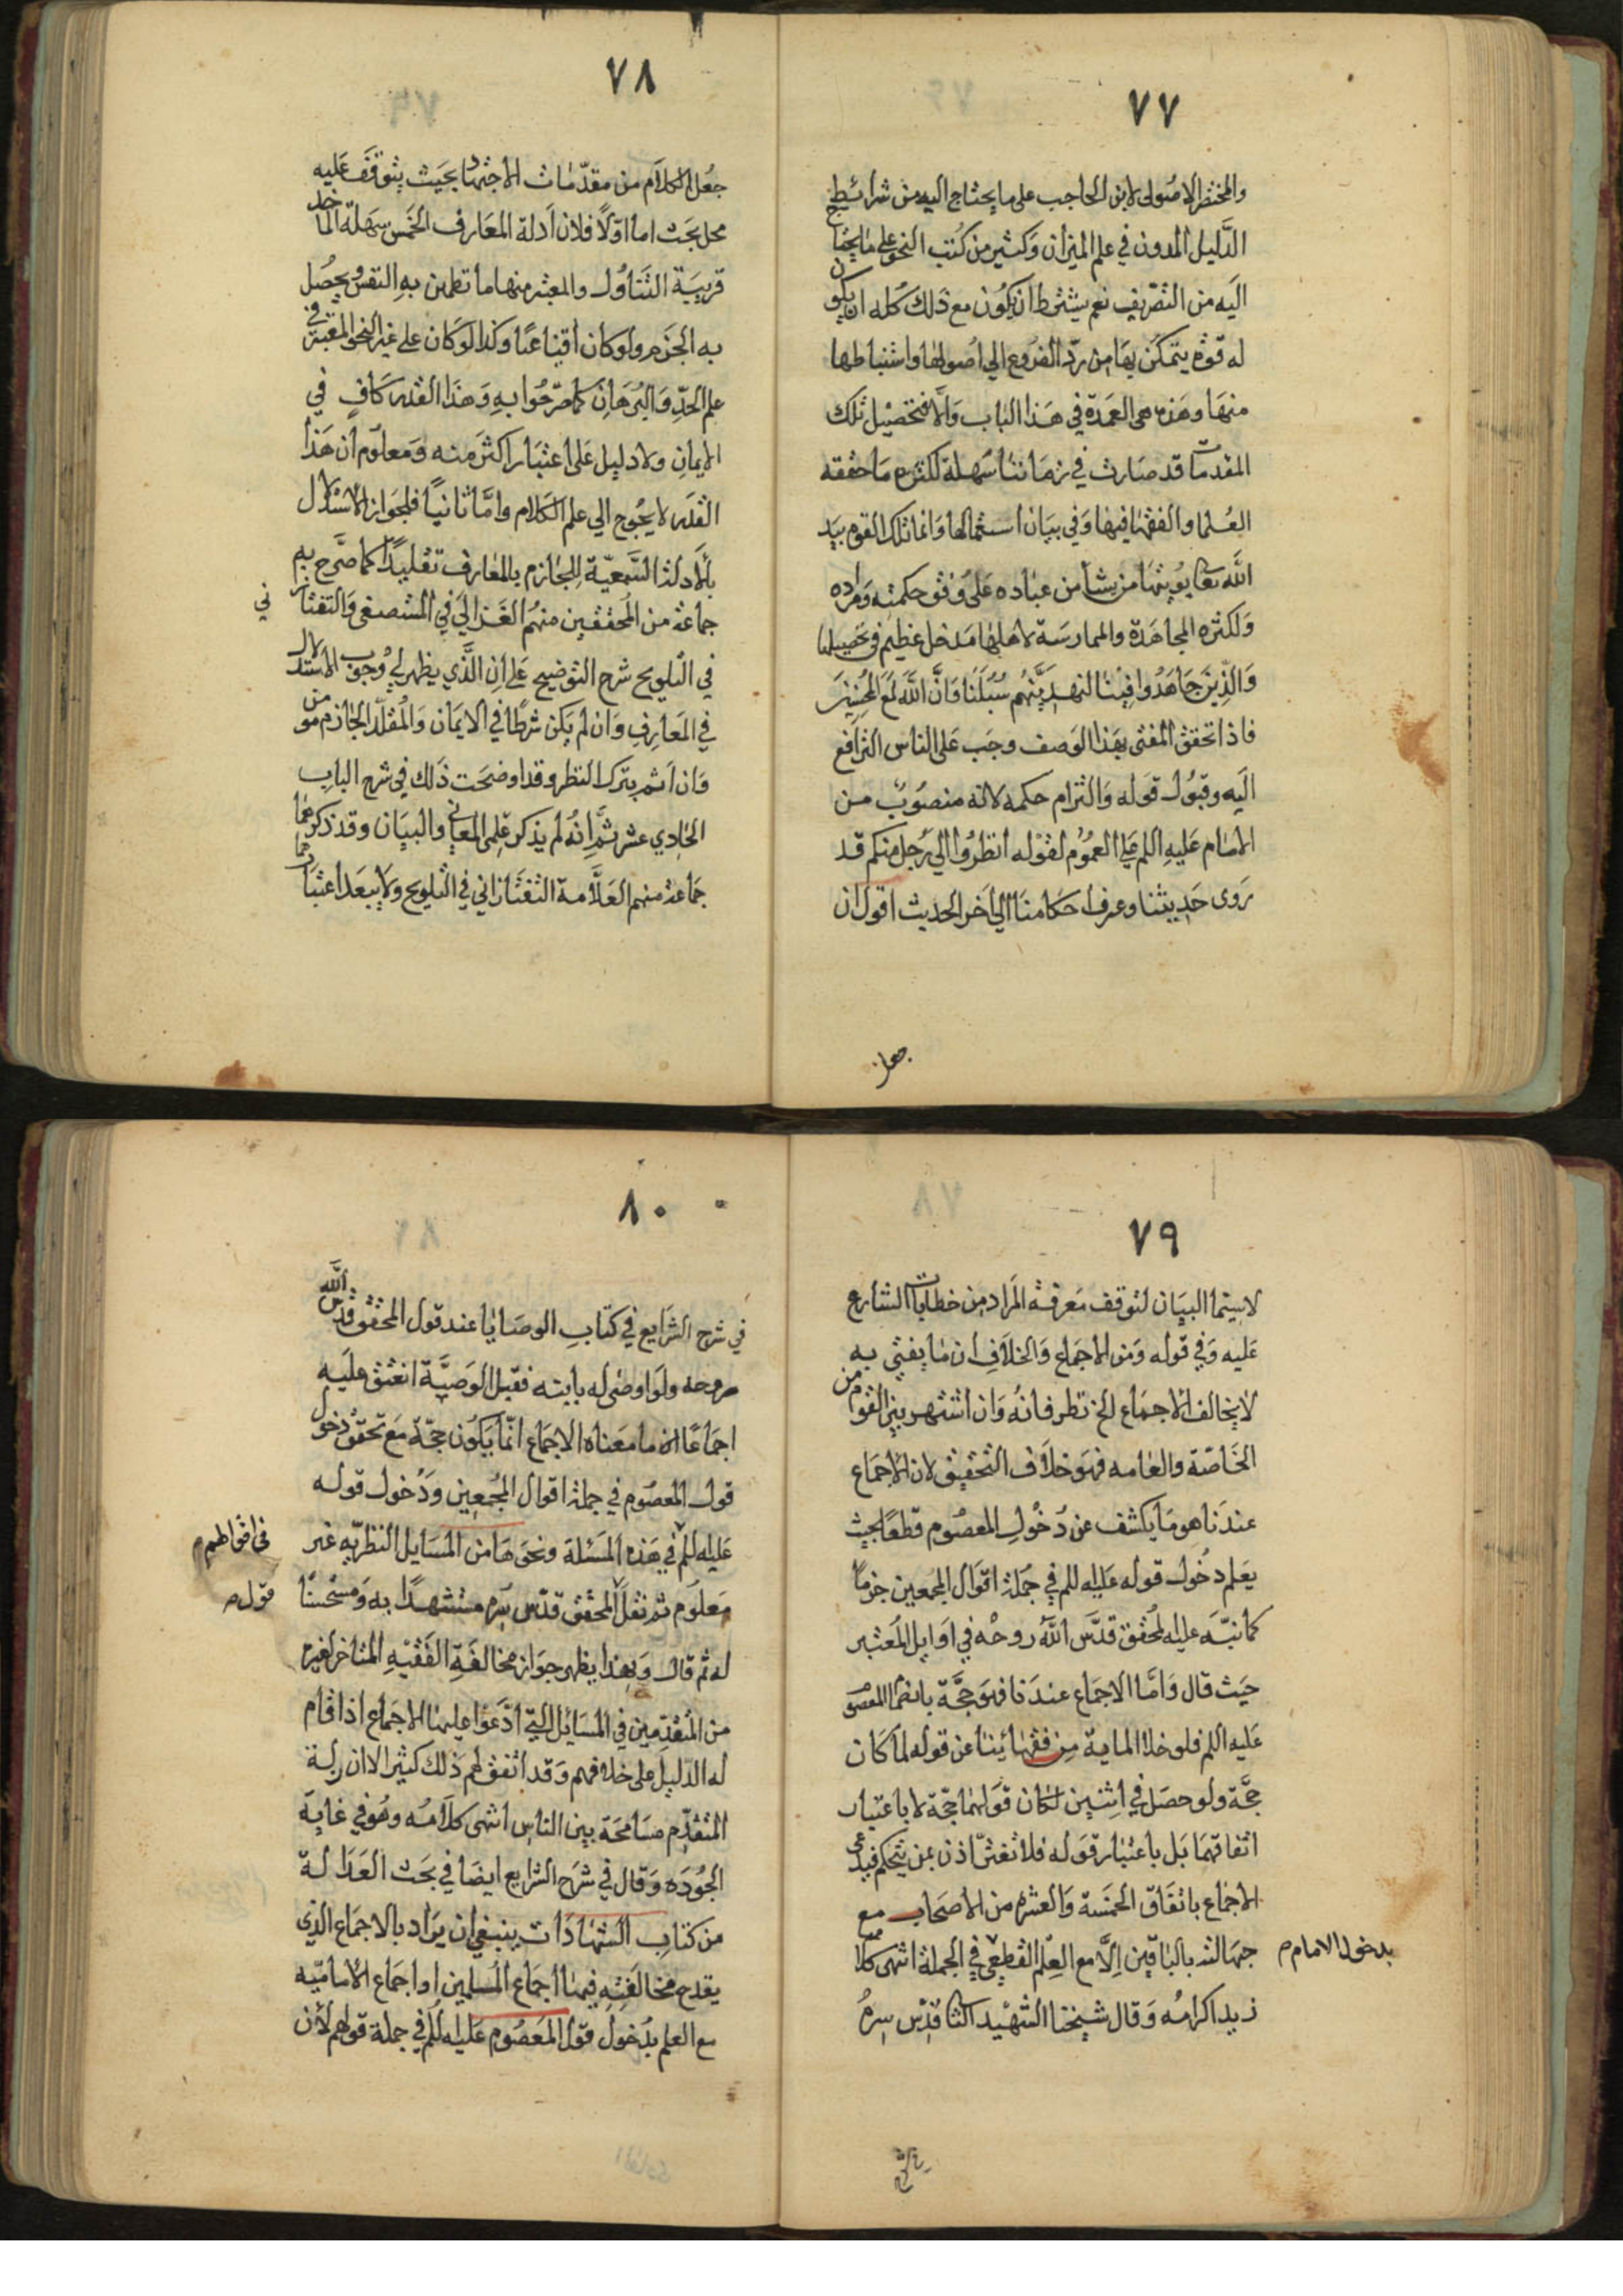 ٧٧
والمختصر الاصولى لابن الحاجب على ما يحتاج اليه من شرائط
الدَّليل المدون في علم الميزان وَكثير من كُتب النحو على ما يحتاج
اليَه من التصريف نعم يشترط ان يكون مع ذلك كله ان يكون
له قوّة يتمكن بها من ردّ الفروع الي اصولها واستنباطها
منها وهذه هى العمدة في هَذا الباب وَالّا فتحصيل تلك
المقدمات قد صَارت في زمَاننا سَهلة لكثرة مَا حققه
العُلما والفقها فيها وَفي بيَان استعمالها وَانما تلك القوم بيَد
الله تعا يؤتيها من يشآ من عبَاده عَلى وُفق حكمته وَمراده
وَلكثرة المجاهَدة والممارسَة لاهلها مَدخل عظيم في تحصيلها
وَالَّذِينَ جَاهَدُوا فِينَا لنهدِيَنَّهُم سُبُلَنَا وَانَّ اللَّهَ لَمَعَ المحْسِنينَ
فاذا تحقق المفتى بهَذا الوَصف وجَب عَلى الناس الترافع
اليَه وقبُول قوَله وَالتزام حكمه لانه منصُوبٌ من
الامَام عَليهِ اللم عَلي العمُوم لقوْله انظرُوا الي رَجل منكم قد
رَوى حَديثنا وعرف احكامنَا الي آخر الحديث اقول ان
جعل
٧٨
جعُل الكلاَم من مقدّمَات الاجتهَاد بحَيث يتوقفَ عَليه
محل بحَث اما اوّلاً فلان أدلة المعَارف الخَمس سَهلة المآخذ
قريبَة التنَاوُل والمعتبر منها ما تطمئن بهِ النفس ويحصُل
به الجزم ولو كان اقناعيًا وكذا لوكَان على غير النحو المعتبر في
علم الحدِّ وَالبُرهَانِ كما صرّحُوا بهِ وَهذَا القدر كَافٍ في
الايمَانِ ولا دليل عَلى اعتبَار اكثرَ منه وَمَعلوم أن هَذا
القدَر لا يحُوج الي علم الكَلام وَامَّا ثانيًا فلجوَاز الاستدلال
بالأدلة السَّمعيّة للجازم بالمعَارف تقليدًا كما صَرَّح به
جماعَة من المُحققين منهُم الغَزالي في المستصفى وَالتفتازاني
في التلويح شرح التوضيح عَلى ان الَّذي يظهر لي وُجوب الاستدلال
في المعَارفِ وَان لم يَكن شرطًا في الايمَان وَالمُقلّد الجازم مومن
وَان اَثم بترك النظر وقد اوضَحت ذَلك في شرح البابِ
الحادي عشر ثمَّ إنهُ لم يذكر عِلمى المعَاني والبيَان وقد ذكرهما
جَماعة منهم العَلَّامة التفتَازاني في التلويح ولا يبعَد اعتبَارهما
٧٩
لاسيّما البيَان لتوقف مَعرفة المرَاد من خطابات الشارع
عَليه وَفي قوله وَمن الاجمَاع وَالخلَافِ ان مَا يفتي به
لا يخالف الاجمَاع الخ نظر فانهُ وَان اشتهر بين القوم من
الخَاصّة والعَامه فهوَ خلَاف التحقيق لان الاجمَاع
عندَنا هو مَا يكشف عن دُخُولِ المعصُوم قطعًا بحيث
يعَلم دخُول قوله عَليه للم في جُملة اقوَال المجمعين جزمًا
كما نبَّه عليه المُحقق قدَّس اللهُ روحُه في اوَايل المُعتبر
حَيث قال وَامَّا الاجمَاع عندَنا فهوَ حجَّة بانضمام المعصوم
عَليه اللم فلو خلا الماية مِن فقهَائينا عن قوله لما كَان
حجَّة ولو حصَل في اثنين لكان قوَلهما حجّة لا باعتبار
اتفاقهما بَل باعتبار قوَله فلا تغترّ اذن بمن يتحكم فيدعي
الاجمَاع باتفَاق الخمسَة وَالعشرة من الاصحَاب مع
جهَالته بالباقين اِلَّا مع العِلم القطعيّ في الجملة انتهى كلامه
بدخول الامام م
زيد اكرامُه وَقال شيخنا الشهيْد الثا قدّس سِرهُ
في شرح
٨٠
في شرح الشرَايع في كتابِ الوصَايا عند قول المحقق قدس الله
روحه ولَو اوصى له بابنه فقبل الوَصيَّة انعتق عليَه
اجمَاعًا ان ما معَناه الاجمَاع انّما يَكون حجّة مَع تحقق دخول
قول المعصُوم في جملة اقوال المجُمعين وَدُخول قوله
عَليه للم في هَذه المَسئلة ونحوَ هَا من المسَايل النظريّه غير
في اقوالهم م
معَلوُم ثم نقل المحقق قدّس سِره مستشهدًا به وَمستحسنًا
قول ص
له ثم قال وَبهذا يظهر جوَاز مخالفَةِ الفَقيْهِ المتاخر لغيره
من المُتقدِّمين في المسَائل التي ادّعَوْا عليهَا الاجمَاع اذا قام
له الدّليل على خلافهم وَقد اتفق لهم ذَلك كثيرًا لا ان زلة
المتقدِّم مسَامحَة بين الناس انتهى كلَامُه وهُو في غايَة
الجُودَه وَقال في شرَح الشرايع ايضًا في بحَث العَدَالة
من كتاب الشهَادَات ينبغي ان يرَاد بالاجمَاع الذي
يقدح مخالفَته فيهَا اجمَاع المُسلمين او اجمَاع الاماميّه
مع العلم بدُخولُ قوْل المَعصُوم عَليه للم في جملة قولهم لأن